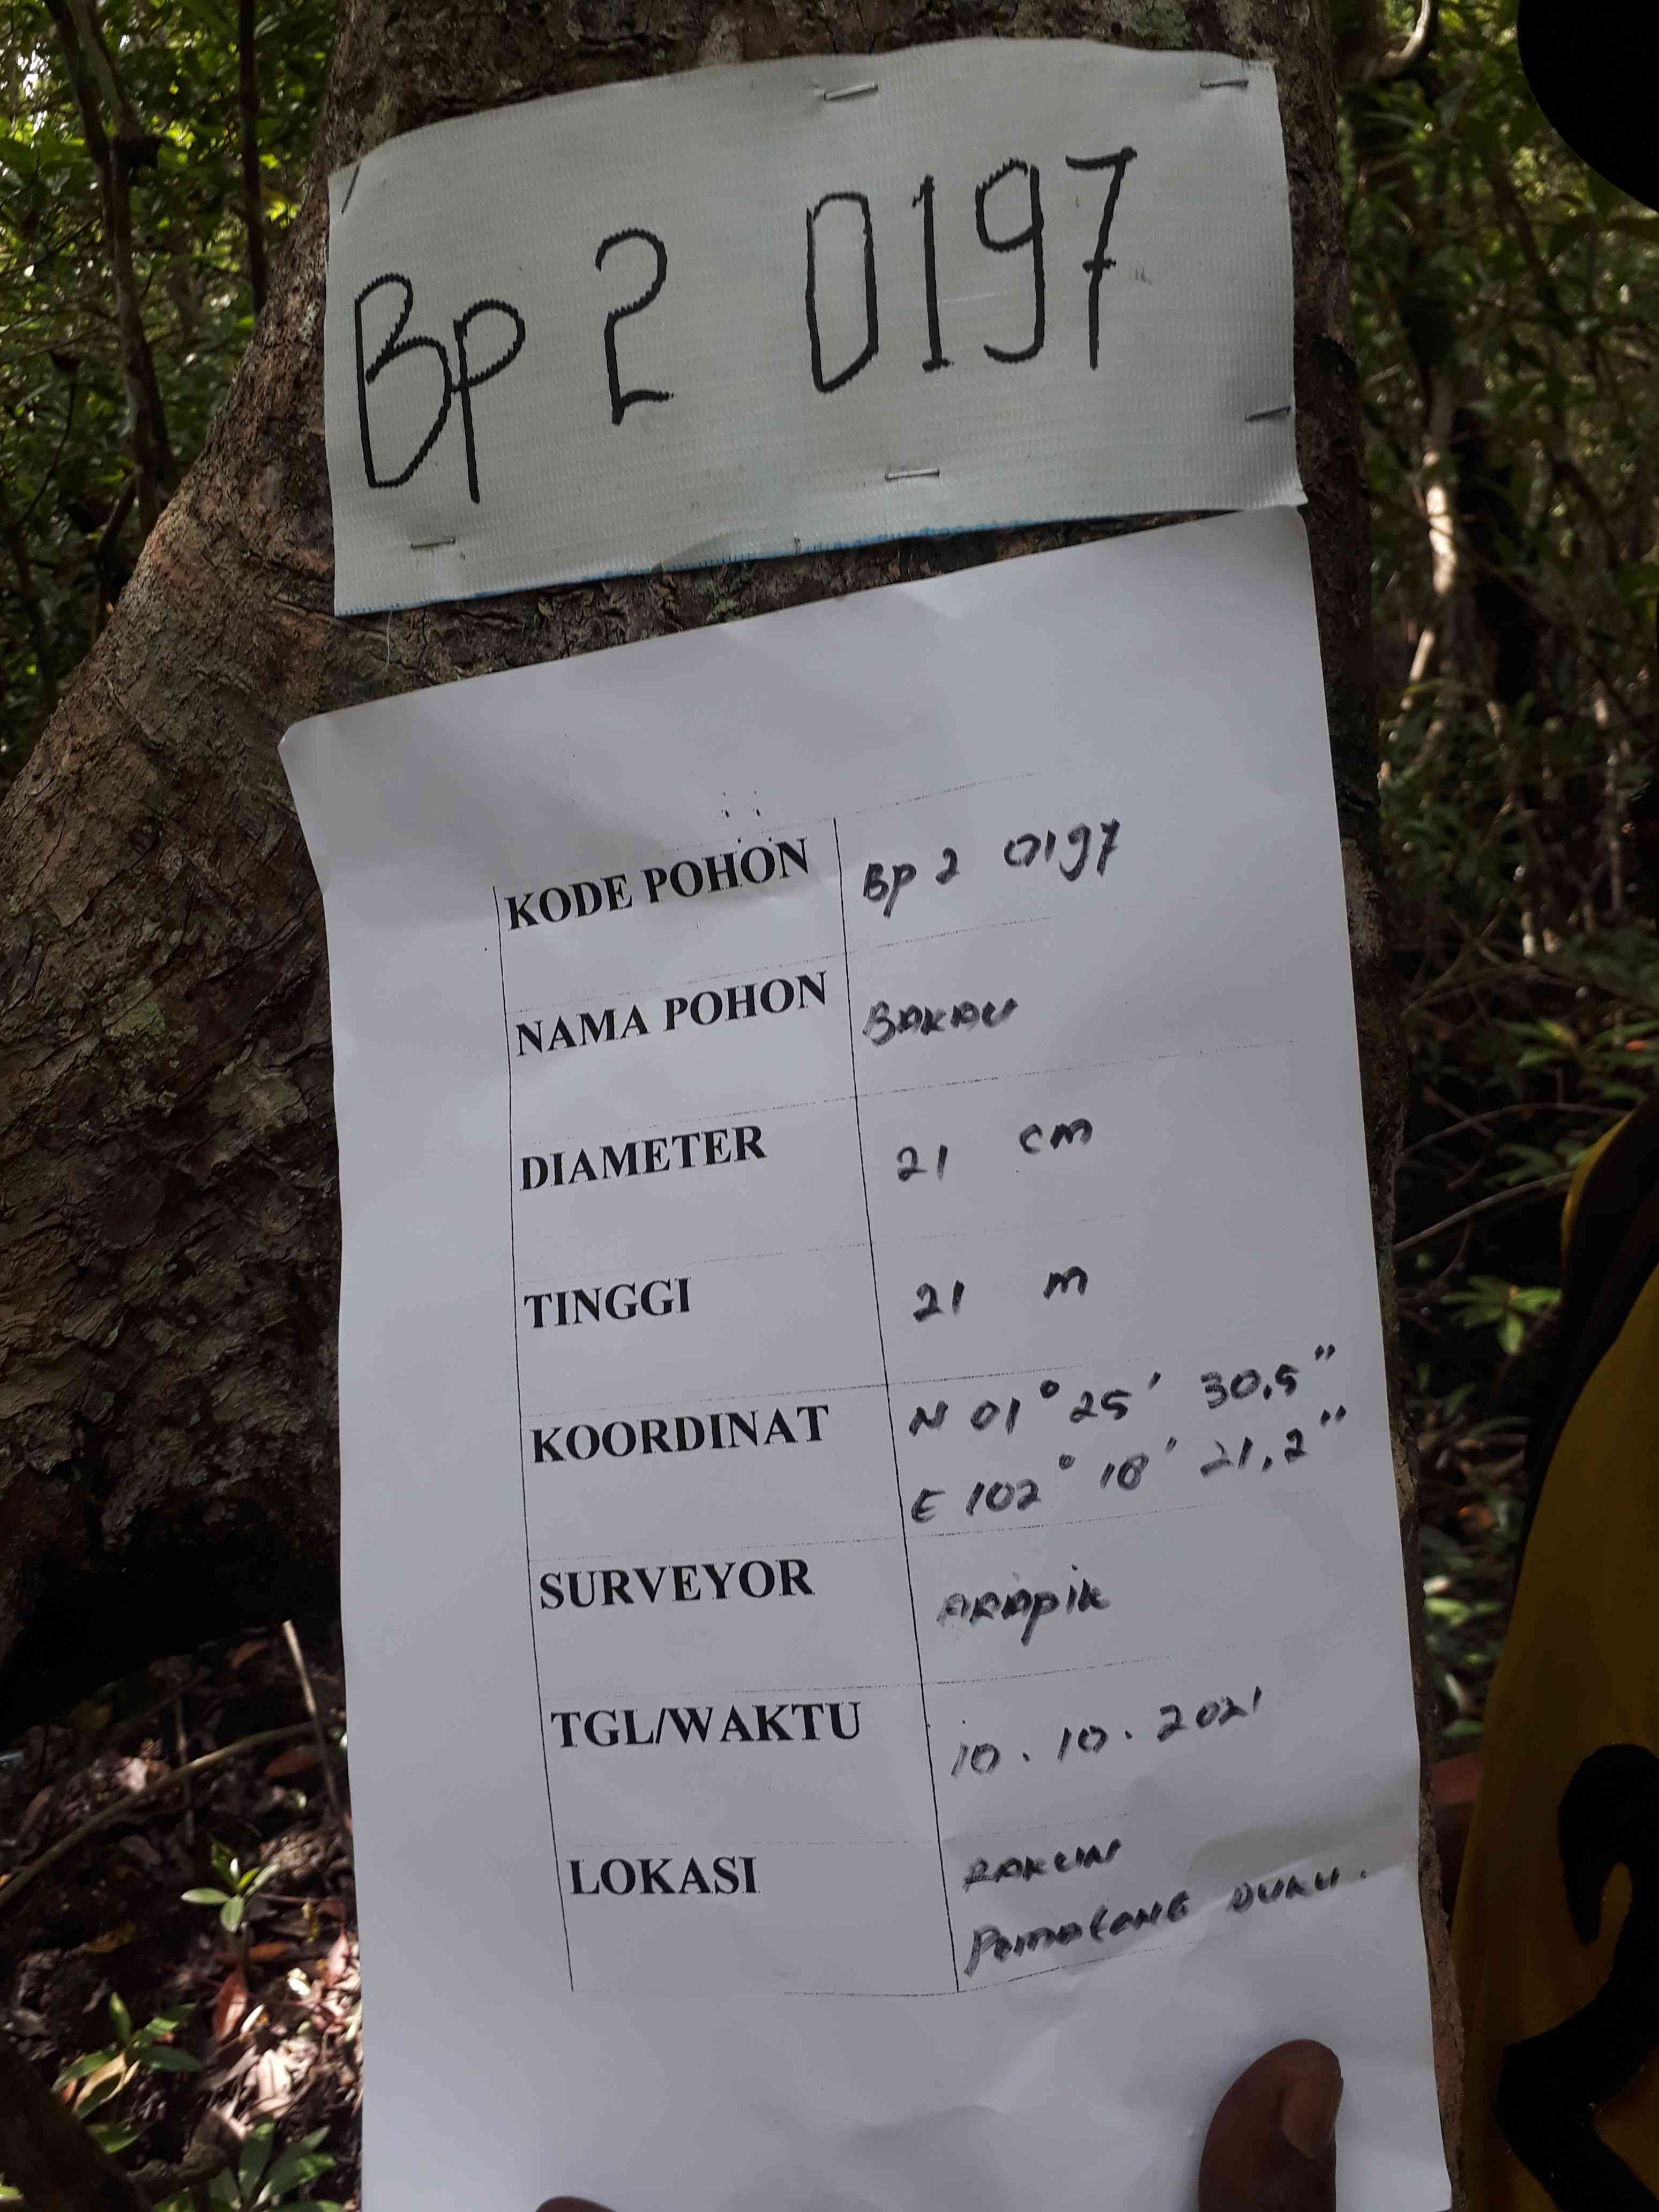 Bp 2 0197
KODE POHON Bp 2 0197
NAMA POHON BAKAU
DIAMETER 21 cm
TINGGI 21 m
KOORDINAT N 01° 25' 30,5"
E 102° 18' 21,2"
SURVEYOR ARApik
TGL/WAKTU 10. 10. 2021
LOKASI
DUKU.